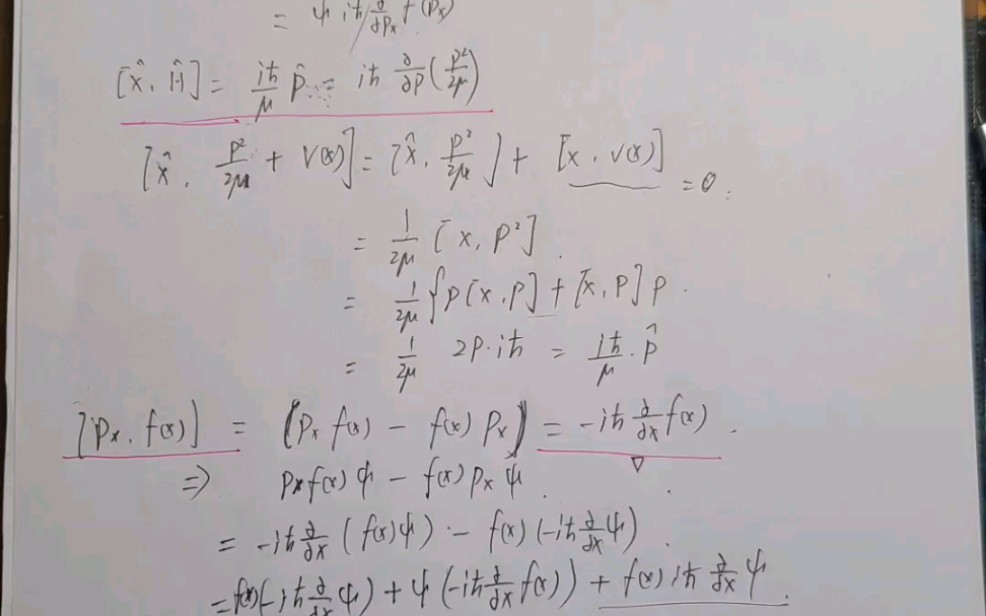 = ψ iħ ∂/∂Pₓ f(Pₓ)
[x̂, Ĥ] = iħ/μ p̂ = iħ ∂/∂p (p²/2μ)
[x̂, p²/2μ + V(x)] = [x̂, p²/2μ] + [x, V(x)] = 0.
= 1/2μ [x, p²].
= 1/2μ {p[x, p] + [x, p] p.
= 1/2μ 2p·iħ = iħ/μ · p̂
[Pₓ, f(x)] = (Pₓ f(x) − f(x) Pₓ) = −iħ ∂/∂x f(x).
⇒ Pₓ f(x) ψ − f(x) Pₓ ψ.
= −iħ ∂/∂x (f(x)ψ) − f(x) (−iħ ∂/∂x ψ).
= f(x)(−iħ ∂/∂x ψ) + ψ (−iħ ∂/∂x f(x)) + f(x) iħ ∂/∂x ψ.